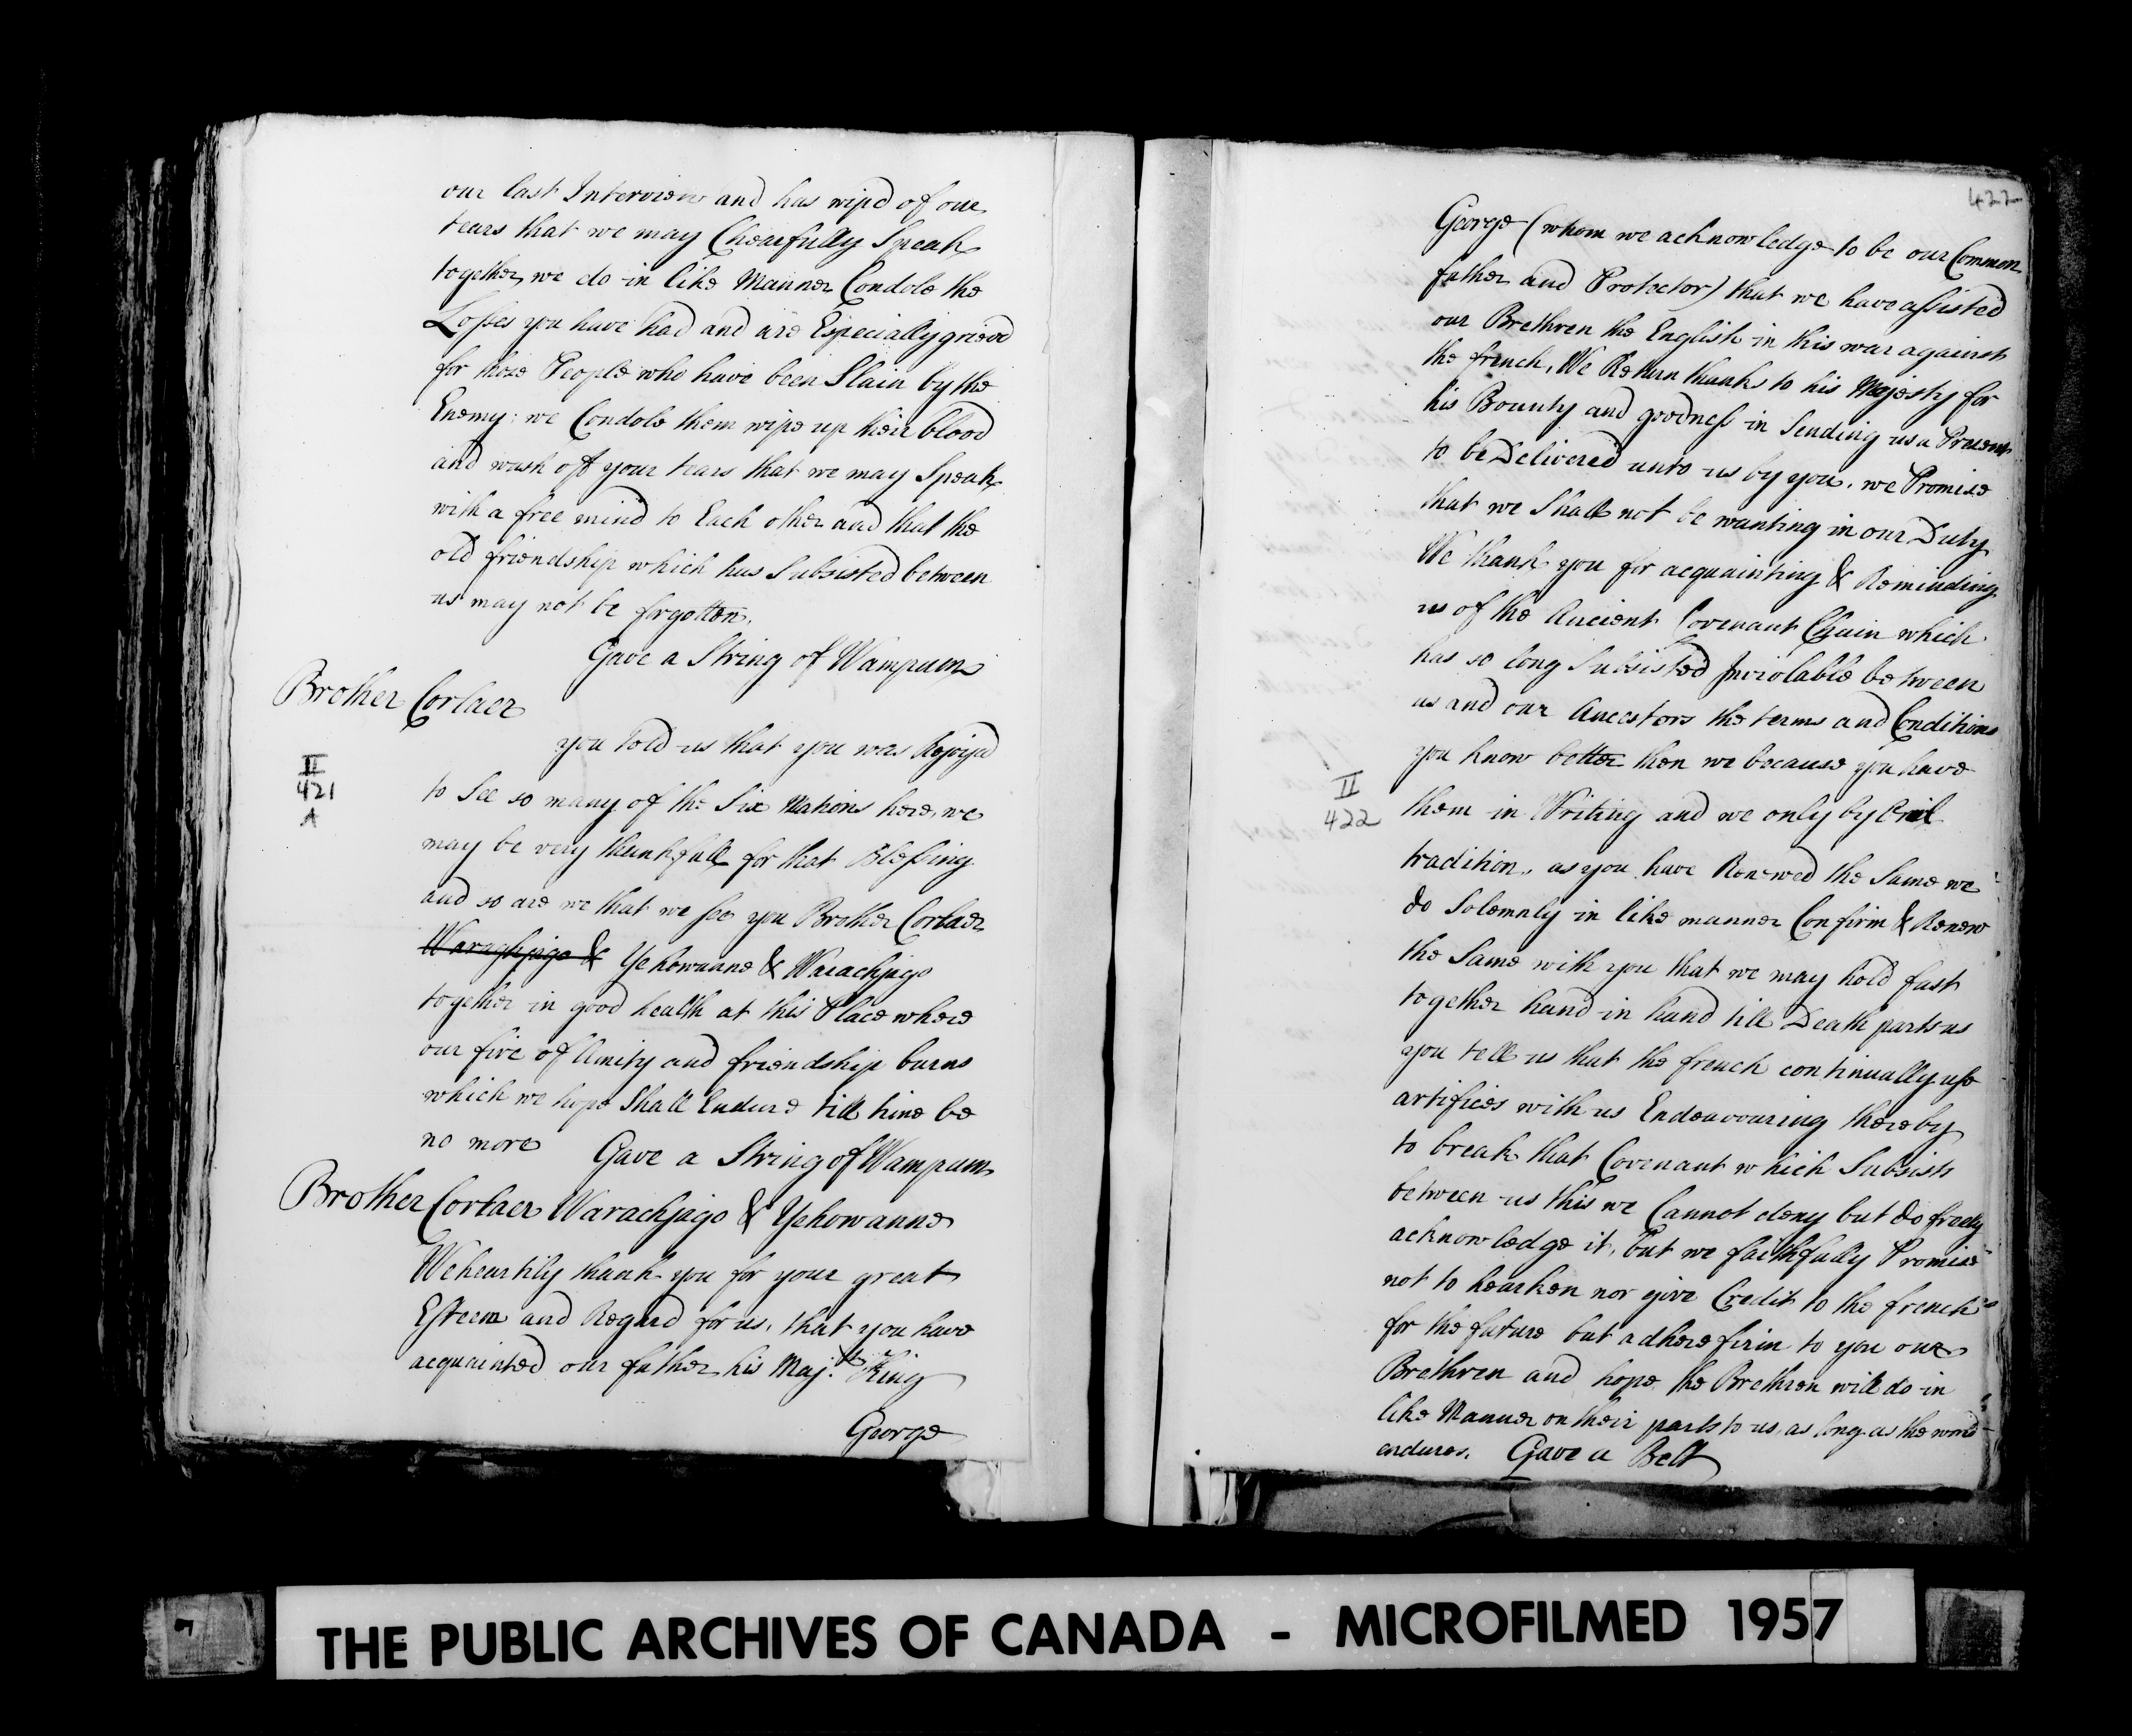 our last Interview and has wipd of our
tears that we may Chearfully Speak
together, we do in like Manner Condole the
Losses you have had and are Especially griev'd
for those People who have been Slain by the
Enemy: we Condole them wipe up their blood
and wash off your tears that we may Speak
with a free mind to Each other and that the
old friendship which has Subsisted between
us may not be forgotten.
Gave a String of Wampum
Brother Corlaer
you told us that you was Rejoyd
II
421
A
to See so many of the Six Nations here, we
may be very thankfull for that Blessing
and so are we that we see you Brother Corlaer
Waraghjago & Yehowanne & Warachjago
together in good health at this Place where
our fire of Unity and friendship burns
which we hope Shall Endure till time be
no more Gave a String of Wampum
Brother Corlaer Warachjago & Yehowanne
We heartily thank you for your great
Esteem and Regard for us, that you have
acquainted our father his Maj.ty King
George
422
George (whom we acknowledge to be our Common
father and Protector) that we have assisted
our Brethren the English in this war against
the french, We Return thanks to his Majesty for
his Bounty and goodness in Sending us a Present
to be Delivered unto us by you. we Promise
that we Shall not be wanting in our Duty
We thank you for acquainting & Reminding
us of the Ancient Covenant Chain which
has so long Subsisted Inviolable between
us and our Ancestors the terms and Conditions
you know better then we because you have
II
422
them in Writing and we only by Oral
tradition, as you have Renewed the Same we
do Solemnly in like manner Confirm & Renew
the Same with you that we may hold fast
together hand in hand till Death parts us
you tell us that the french continually use
artifices with us Endeavouring thereby
to break that Covenant which Subsists
between us this we Cannot deny but do freely
acknowledge it, but we faithfully Promise
not to hearken nor give Credit to the french
for the future but adhere firm to you our
Brethren and hope the Brethren will do in
like Manner on their parts to us, as long as the world
endures. Gave a Belt
THE PUBLIC ARCHIVES OF CANADA - MICROFILMED 1957